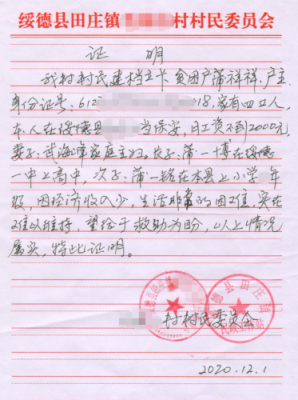 绥德县田庄镇 村村民委员会
证 明
我村村民建档立卡贫困户蒲祥祥,户主
身份证号:612 018,家有四口人,
本人在绥德县 当保安,月工资不到2000元
妻子:武海 家庭主妇。长子:蒲一博在绥德
一中上高中,次子:蒲一 在本县上小学 年
级,因经济收入少,生活非常的困难,实在
难以维持,望给于救助为盼,以上情况
属实,特此证明。
村村民委员会
2020.12.1